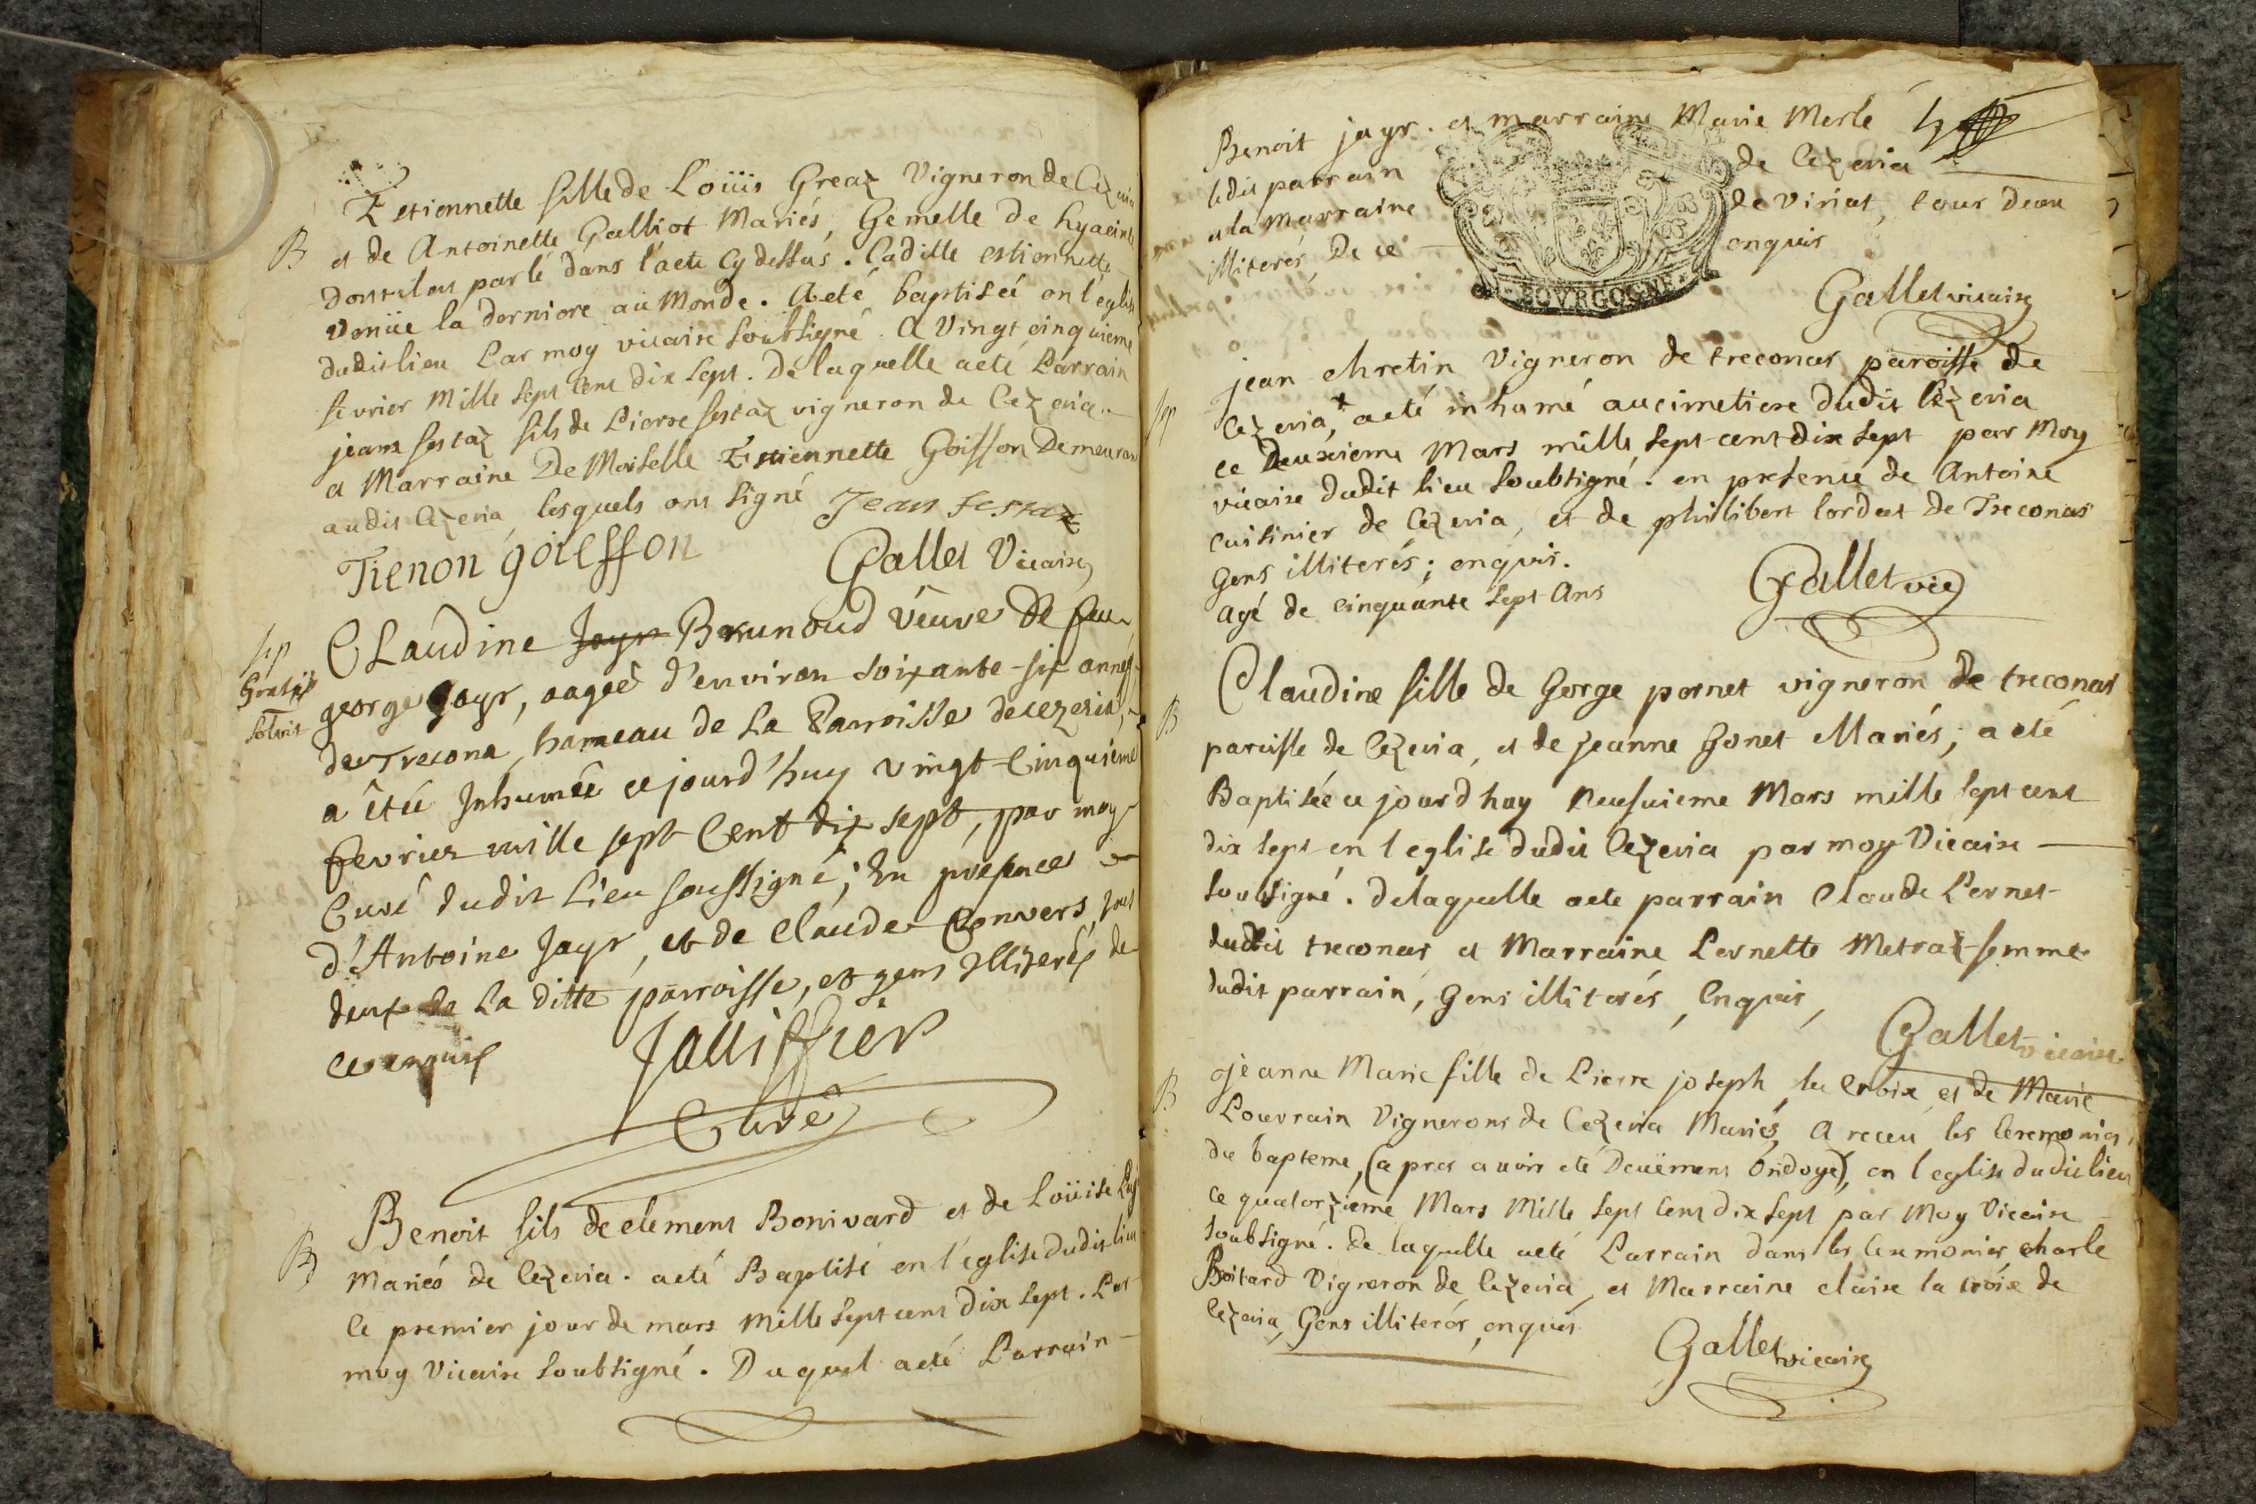 Etiennette fille de Loüis Greaz Vigneron de Cezeria
B
et de Antoinette Galliot Mariés, Gemelle de hyacinte
dont il est parlé dans l'acte cy dessus. Laditte estiennette
venüe la derniere au Monde. A eté baptiseé en l'eglise
dudit lieu Par moy vicaire soubsigné. A Vingt cinquieme
fevrier Mille sept cent dix sept. De laquelle a eté Parrain
jean festaz fils de Pierre festaz vigneron de Cezeria
et Marraine DeMoiselle Etiennette Goisson Demeurant
audit Cezeria, lesquels ont signé Jean festaz
Tienon goiesson Gallet Vicaire
sep
Gratis
solvit
Claudine Jayr Brunoud veuve de feu
george Jayr, aageé d'environ soixante-six années
de Trecona, hameau de la Parroisse de cezeria,
a êtée Inhumeé ce jourd'huy vingt-Cinquieme
fevrier mille sept Cent dix sept, par moy
Curé dudit Lieu soussigné; En presence
d'Antoine Jayr, et de Claude Convers, tous
deux de La ditte parroisse, et gens Illiterés de
ce enquis Jalliffier
Curé
B
Benoit fils de clement Bonivard et de Loüise
Mariés de Cezeria. a eté Baptisé en l'eglise dudit lieu
le premier jour de mars Mille sept cent dix sept. Par
moy Vicaire soubsigné. Duquel a eté Parrain
Benoit jayr. et marraine Marie Merle
ledit parrain de Cezeria
et la marraine de Viriat, tous deux
illiterés De ce enquis
BOVRGOGNE
Gallet vicaire
sep
jean chretin Vigneron de treconas paroisse de
Cezeria, a eté inhumé au cimetiere dudit Cezeria
ce Deuxieme Mars mille sept cent dix sept par Moy
vicaire dudit lieu soubsigné. en presence de Antoine
cuisinier de Cezeria, et de philibert cordat de Treconas
Gens illiterés; enquis.
agé de cinquante sept Ans Gallet vic
B
Claudine fille de George pernet vigneron de treconas
paroisse de Cezeria, et de jeanne Gonet Mariés; a eté
Baptiseé ce jourdhuy Neufvieme Mars mille sept cent
dix sept en l'eglise dudit Cezeria par moy Vicaire
soubsigné. de laquelle a eté parrain Claude Pernet
dudit treconas et Marraine Pernette Metraz femme
dudit parrain, Gens illiterés, Enquis,
Gallet vicaire
B
jeanne Marie fille de Pierre joseph la Croix et de Marie
Louvrain Vignerons de Cezeria Mariés, A receu les Ceremonies
du bapteme, (apres avoir eté Deuëment Ondoyé), en l'eglise dudit lieu
ce quatorzieme Mars Mille sept cent dix sept par Moy Vicaire
soubsigné. De laquelle a eté Parrain dans les Ceremonies, charle
Boitard Vigneron de Cezeria, et Marraine claire la croix de
Cezeria, Gens illiterés, enquis
Gallet vicaire